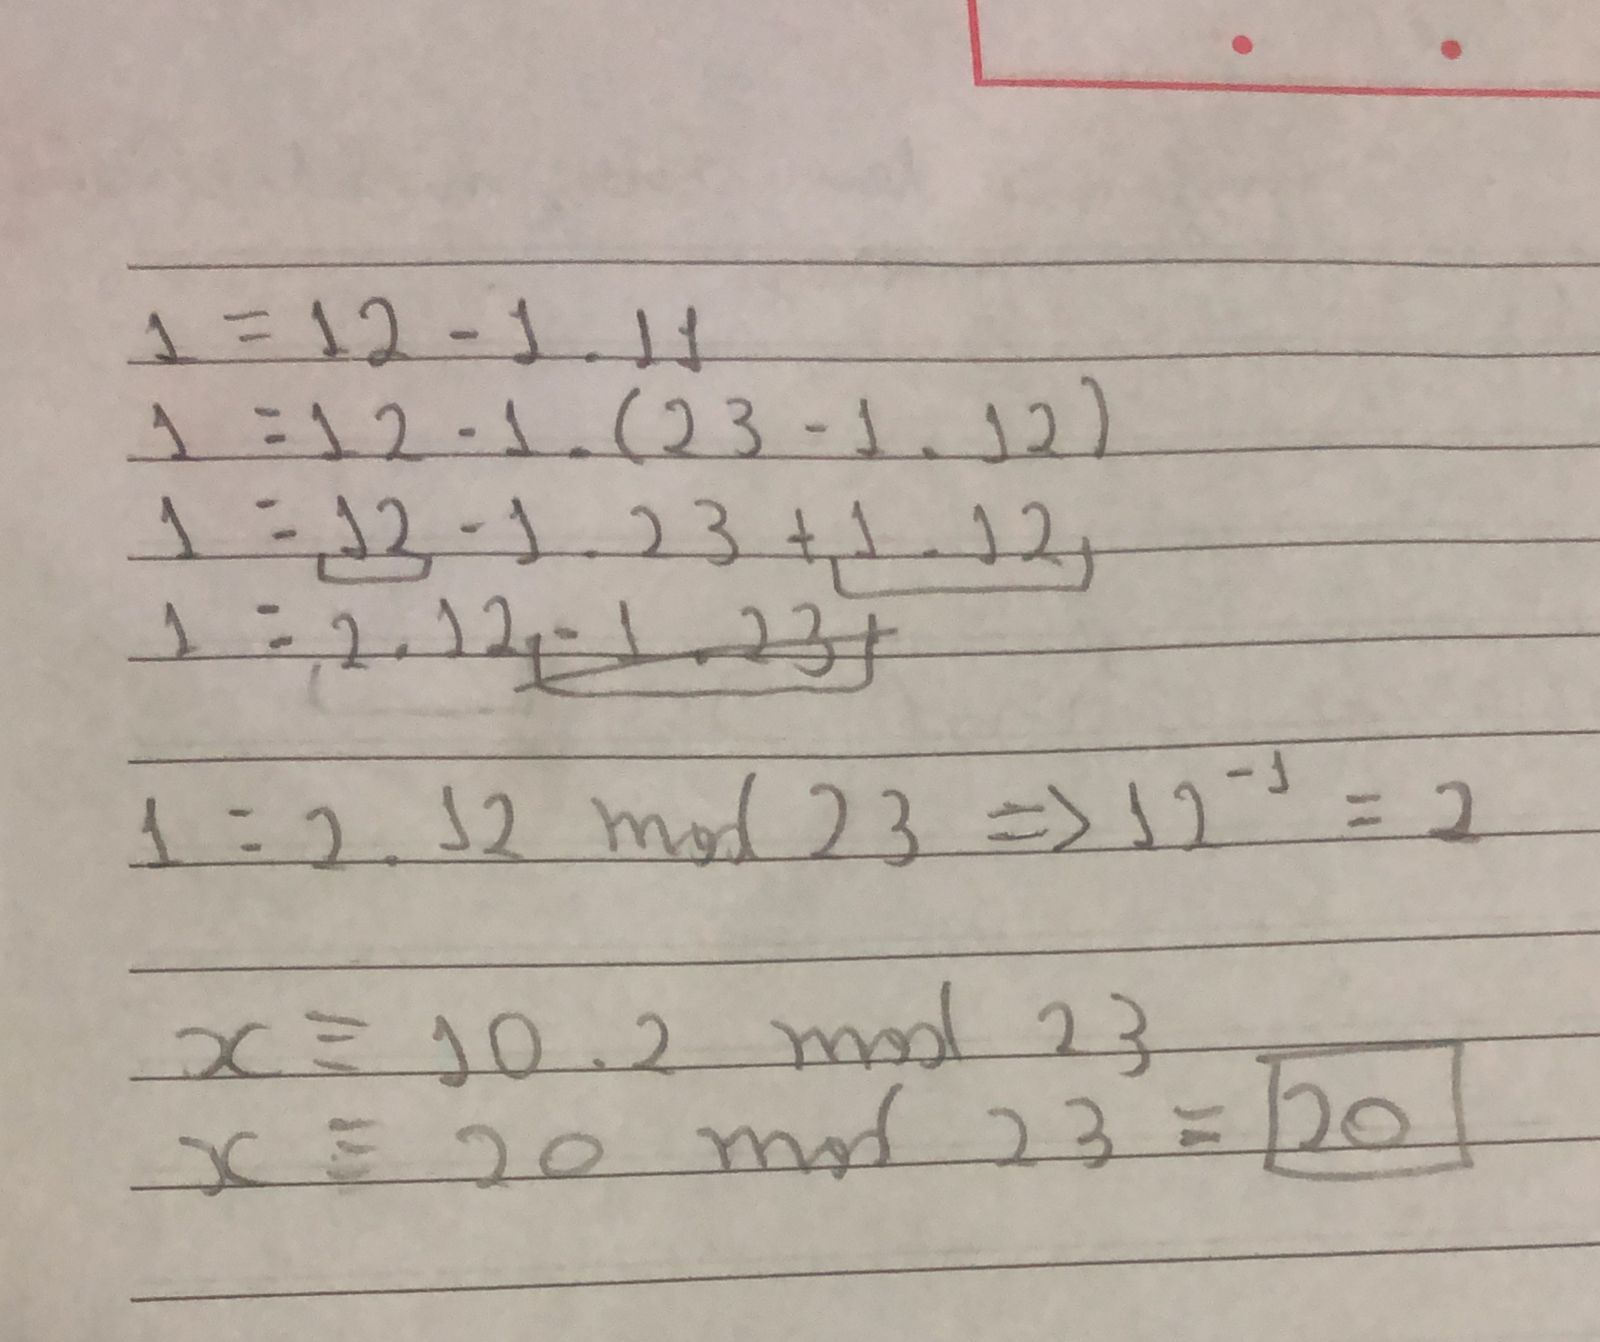 1 = 12 - 1 . 11
1 = 12 - 1 . (23 - 1 . 12)
1 = 12 - 1 . 23 + 1 . 12
1 = 2 . 12 - 1 . 23
1 = 2 . 12 mod 23 => 12⁻¹ = 2
x ≡ 10 . 2 mod 23
x ≡ 20 mod 23 = 20